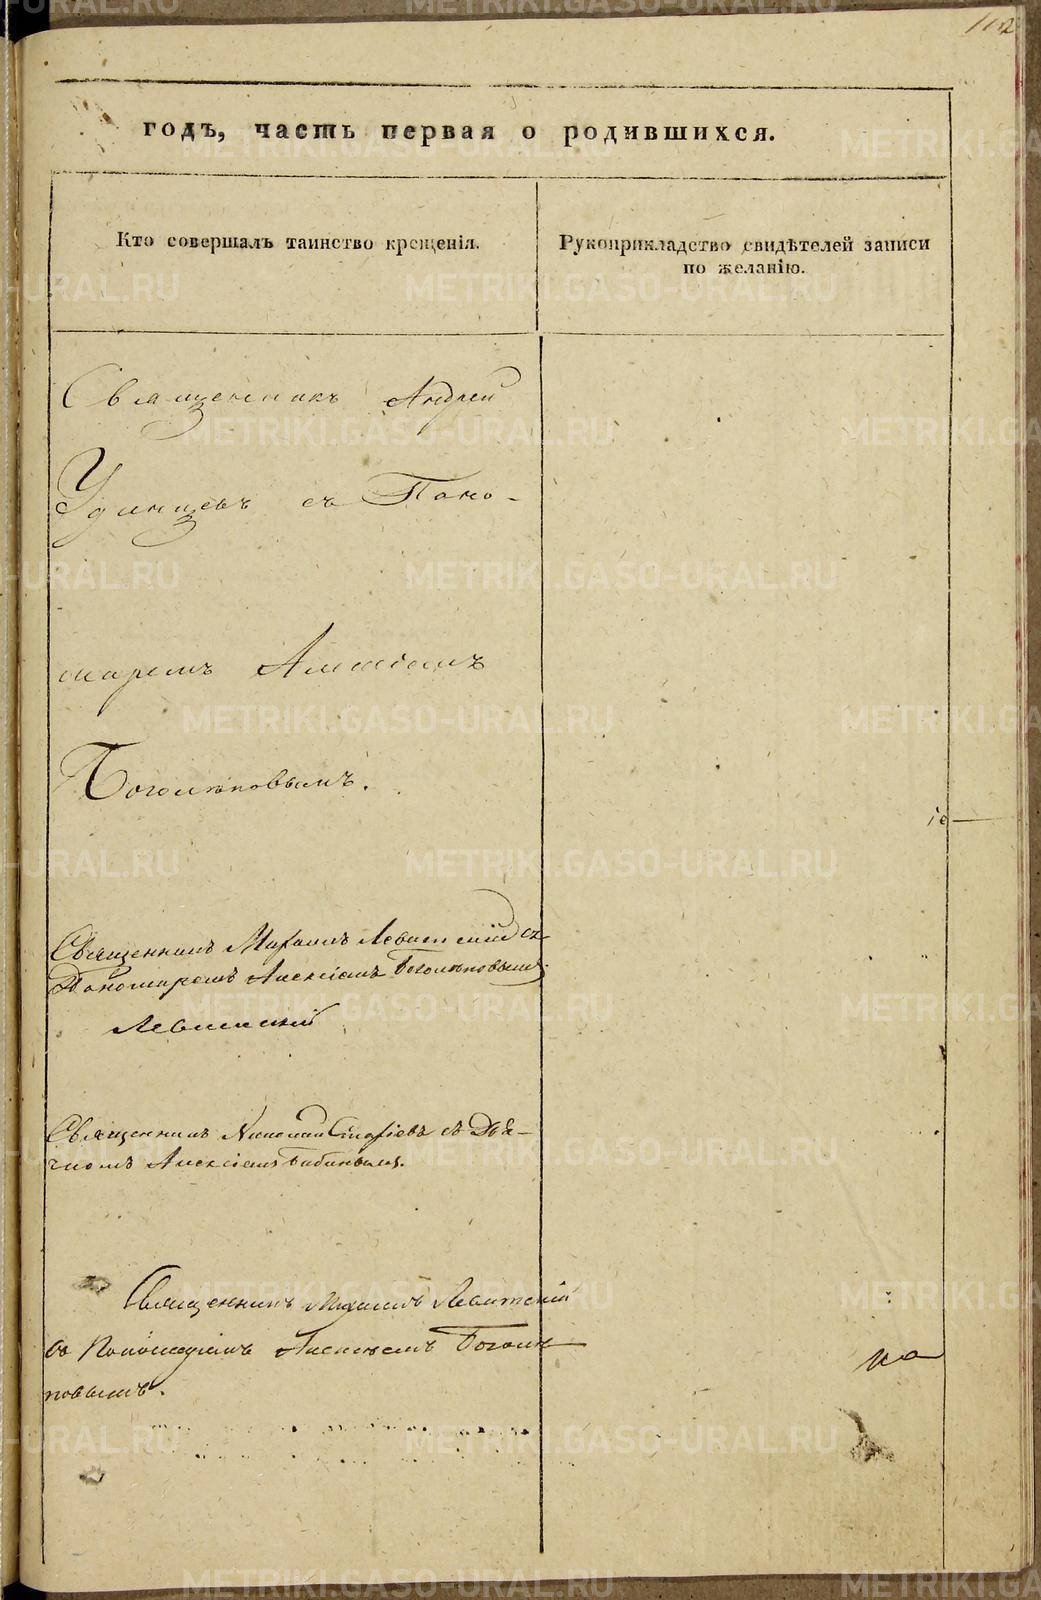 112
годъ, часть первая о родившихся.
Кто совершалъ таинство крещенія.
Рукоприкладство свидѣтелей записи
по желанію.
Священникъ Андрей
Удинцевъ съ Поно-
маремъ Алексіемъ
Боголѣповымъ.
Священникъ Михаилъ Левитскій съ
Пономаремъ Алексіемъ Боголѣповымъ.
Левитскій
Священникъ Николай Стефіевъ съ Дья-
чкомъ Алексіемъ Бабинымъ.
Священникъ Михаилъ Левитскій
со Пономаремъ Алексѣемъ Боголѣ
повымъ.
на
METRIKI.GASO-URAL.RU